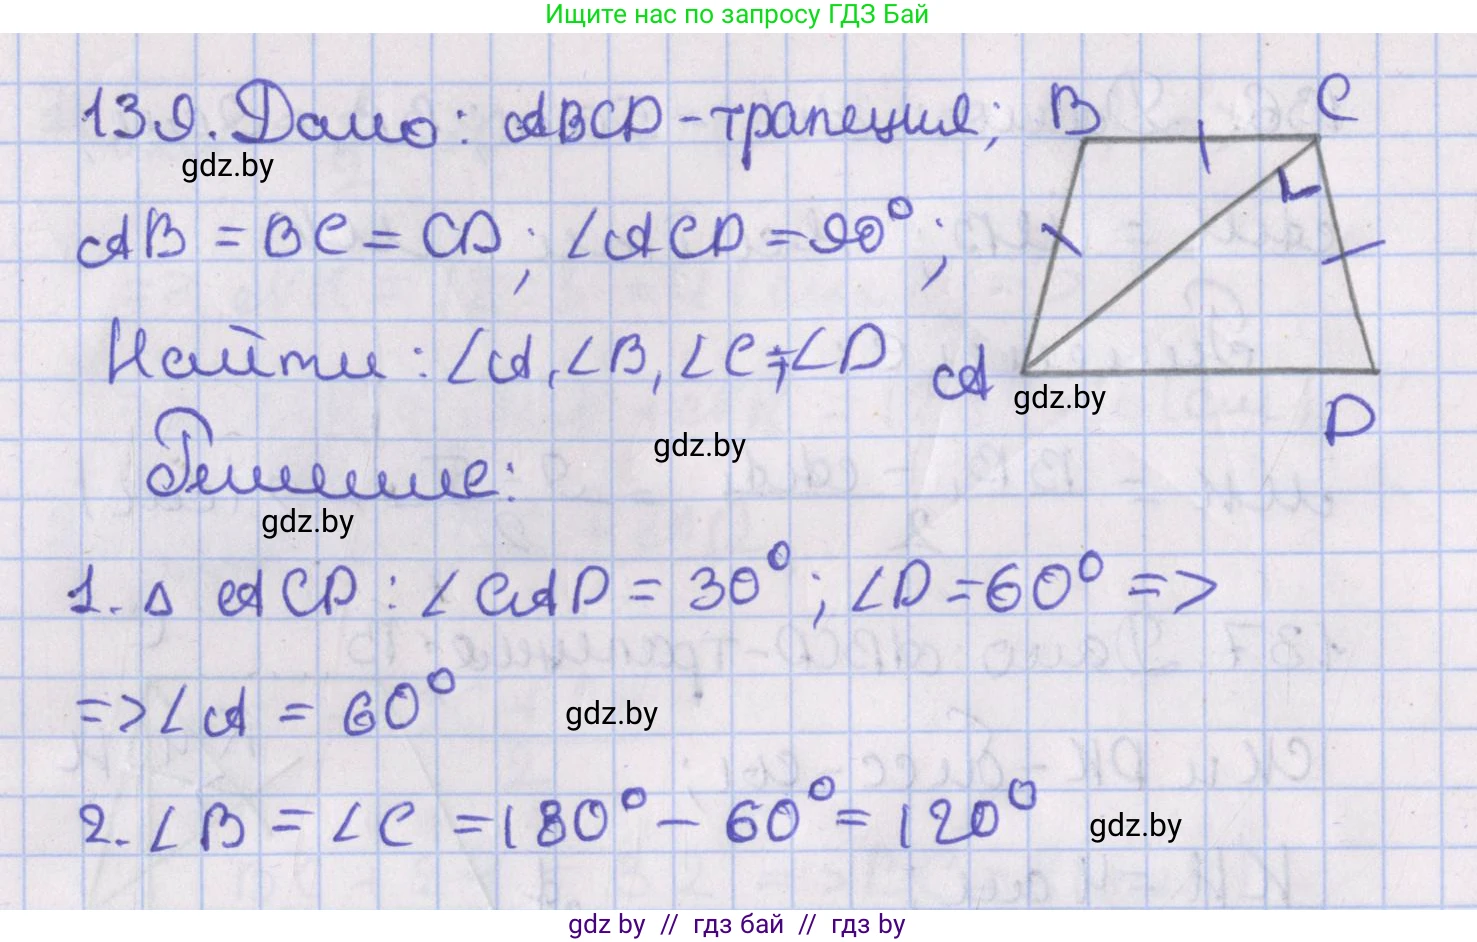 Ищите нас по запросу ГДЗ Бай
139. Дано: ABCD - трапеция;
gdz.by
AB = BC = CD; ∠ACD = 90°;
Найти: ∠A, ∠B, ∠C; ∠D
B
C
A
D
gdz.by
gdz.by
Решение:
gdz.by
1. Δ ACD: ∠CAD = 30°; ∠D = 60° =>
=> ∠A = 60°
gdz.by
2. ∠B = ∠C = 180° - 60° = 120°
gdz.by
gdz by // гдз бай // гдз by